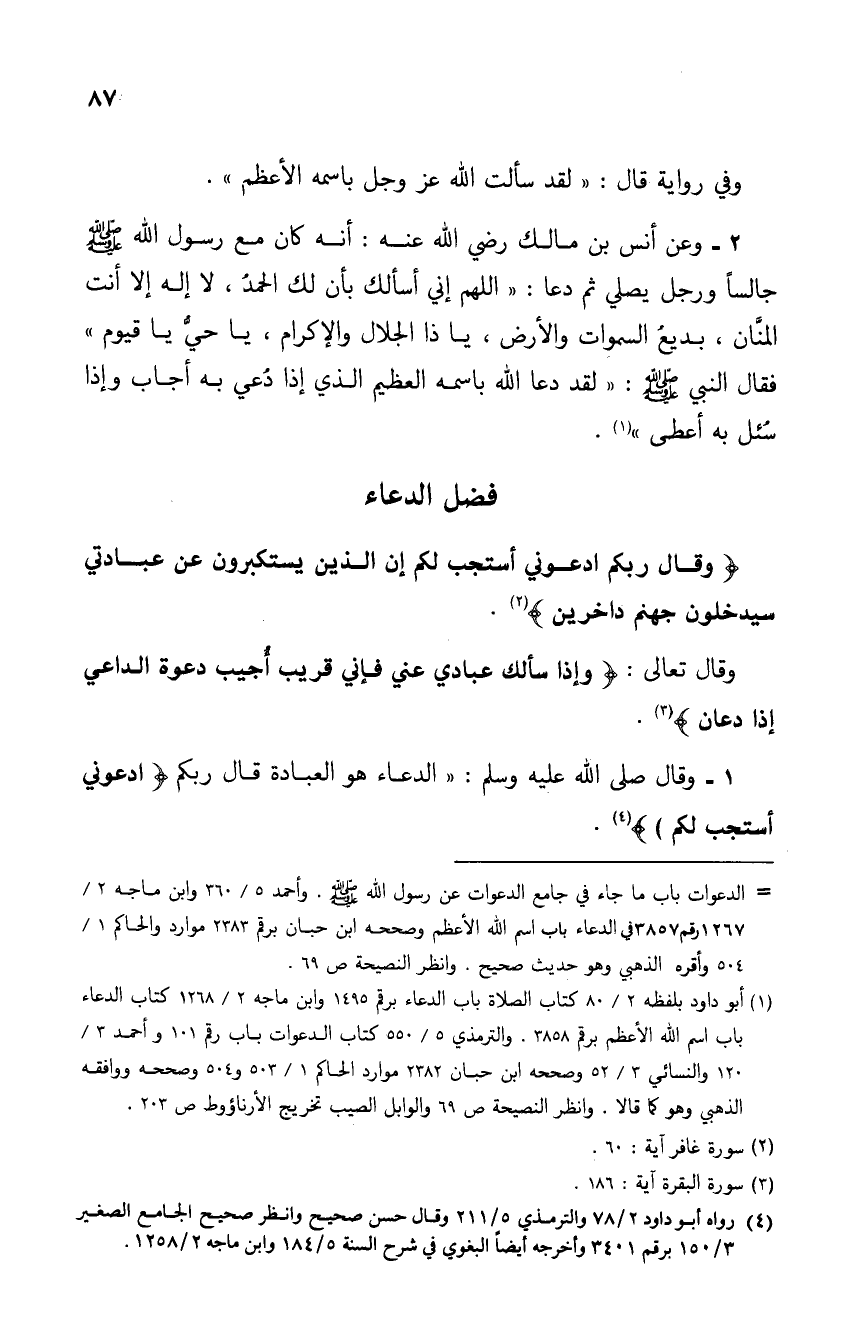 ٨٧
وفي رواية قال : « لقد سألت الله عز وجل باسمه الأعظم » .
٢ ـ وعن أنس بن مالك رضي الله عنه : أنه كان مع رسول الله ﷺ
جالساً ورجل يصلي ثم دعا : « اللهم إني أسألك بأن لك الحمدُ ، لا إله إلا أنت
المنَّان ، بديعُ السموات والأرض ، يا ذا الجلال والإكرام ، يا حيُّ يا قيوم »
فقال النبي ﷺ : « لقد دعا الله باسمه العظيم الذي إذا دُعي به أجاب وإذا
سُئل به أعطى »(١) .
فضل الدعاء
﴿ وقال ربكم ادعوني أستجب لكم إن الذين يستكبرون عن عبادتي
سيدخلون جهنم داخرين ﴾(٢) .
وقال تعالى : ﴿ وإذا سألك عبادي عني فإني قريب أُجيب دعوة الداعي
إذا دعان ﴾(٣) .
١ ـ وقال صلى الله عليه وسلم : « الدعاء هو العبادة قال ربكم ﴿ ادعوني
أستجب لكم ) ﴾(٤) .
= الدعوات باب ما جاء في جامع الدعوات عن رسول الله ﷺ . وأحمد ٥ / ٣٦٠ وابن ماجه ٢ /
١٢٦٧رقم٣٨٥٧في الدعاء باب اسم الله الأعظم وصححه ابن حبان برقم ٢٣٨٣ موارد والحاكم ١ /
٥٠٤ وأقره الذهبي وهو حديث صحيح . وانظر النصيحة ص ٦٩ .
(١) أبو داود بلفظه ٢ / ٨٠ كتاب الصلاة باب الدعاء برقم ١٤٩٥ وابن ماجه ٢ / ١٢٦٨ كتاب الدعاء
باب اسم الله الأعظم برقم ٣٨٥٨ . والترمذي ٥ / ٥٥٠ كتاب الدعوات باب رقم ١٠١ و أحمد ٣ /
١٢٠ والنسائي ٣ / ٥٢ وصححه ابن حبان ٢٣٨٢ موارد الحاكم ١ / ٥٠٣ و٥٠٤ وصححه ووافقه
الذهبي وهو كما قالا . وانظر النصيحة ص ٦٩ والوابل الصيب تخريج الأرناؤوط ص ٢٠٣ .
(٢) سورة غافر آية : ٦٠ .
(٣) سورة البقرة آية : ١٨٦ .
(٤) رواه أبو داود ٧٨/٢ والترمذي ٢١١/٥ وقال حسن صحيح وانظر صحيح الجامع الصغير
١٥٠/٣ برقم ٣٤٠١ وأخرجه أيضاً البغوي في شرح السنة ١٨٤/٥ وابن ماجه ١٢٥٨/٢ .